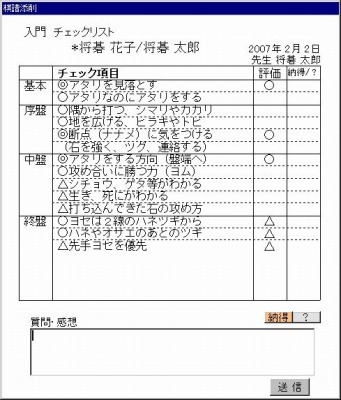 棋譜添削
入門 チェックリスト
*将碁 花子/将碁 太郎
2007年 2月 2日
先生 将碁 太郎
チェック項目 評価 納得/?
基本 ◎アタリを見落とす ○
○アタリなのにアタリをする
序盤 ○隅から打つ、シマリやカカリ
○地を広げる、ヒラキやトビ
◎断点(ナナメ)に気をつける ○
(石を強く、ツグ、連絡する)
中盤 ◎アタリをする方向(盤端へ) ○
○攻め合いに勝つ力(ヨム)
△シチョウ、ゲタ等がわかる
△生き、死にがわかる
△打ち込んできた石の攻め方
終盤 ○ヨセは2線のハネツギから △
○ハネやオサエのあとのツギ △
△先手ヨセを優先 △
納得 ?
質問・感想
送信